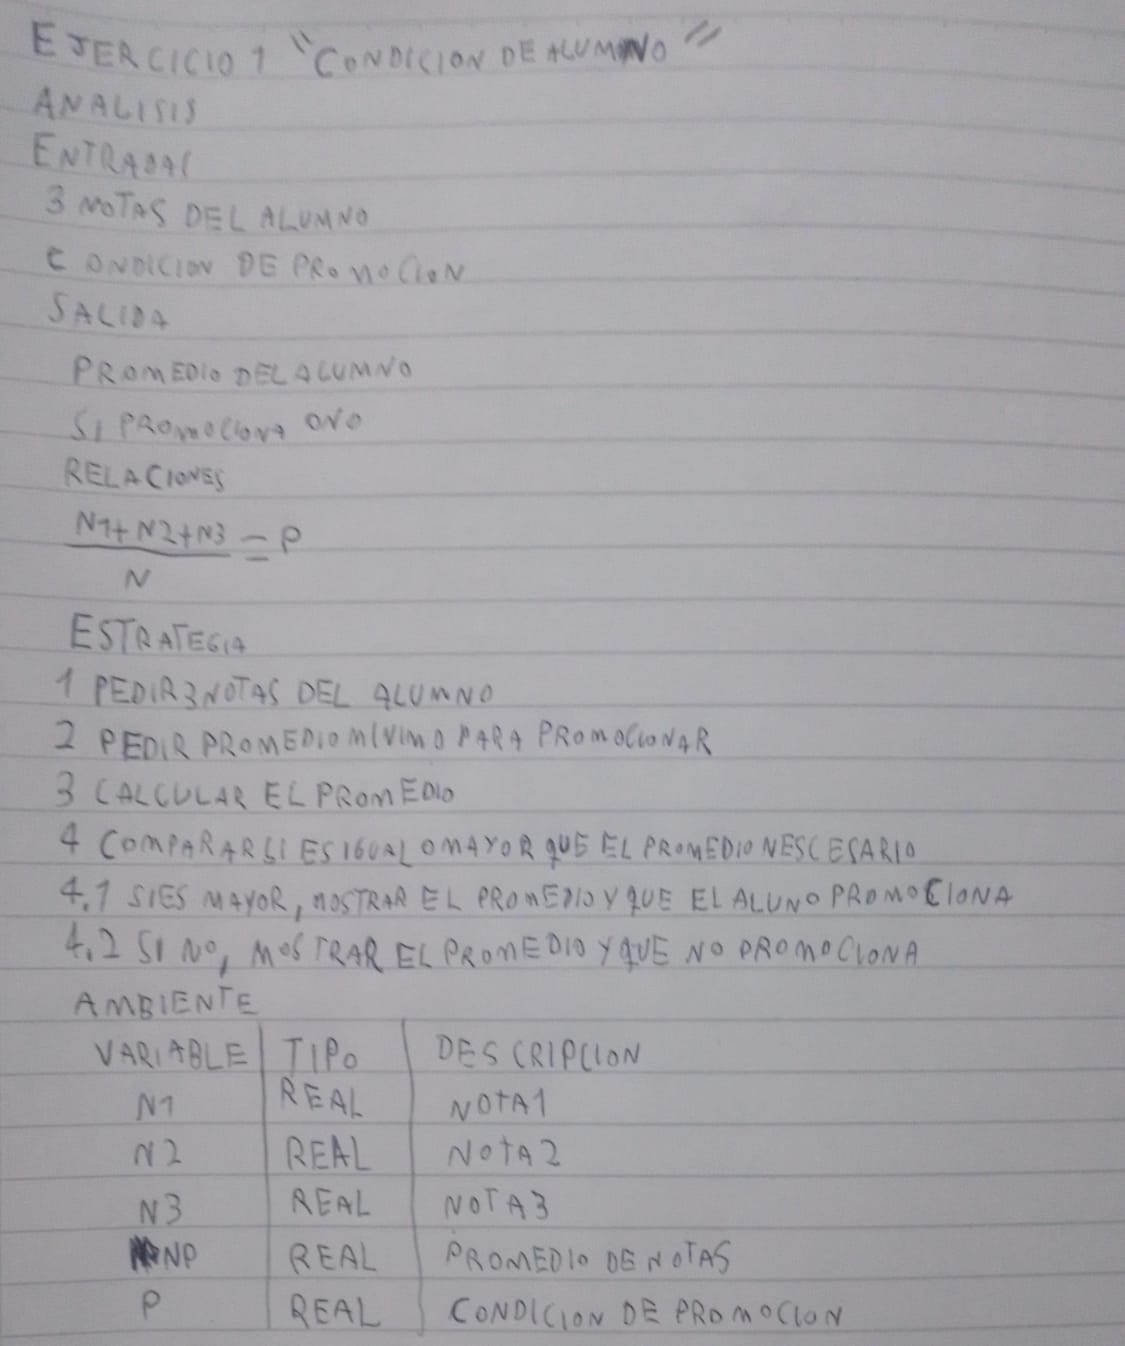 EJERCICIO 1 "CONDICION DE ALUMNO"
ANALISIS
ENTRADAS
3 NOTAS DEL ALUMNO
CONDICION DE PROMOCION
SALIDA
PROMEDIO DEL ALUMNO
SI PROMOCIONA O NO
RELACIONES
N1+N2+N3 = P
N
ESTRATEGIA
1 PEDIR 3 NOTAS DEL ALUMNO
2 PEDIR PROMEDIO MINIMO PARA PROMOCIONAR
3 CALCULAR EL PROMEDIO
4 COMPARAR SI ES IGUAL O MAYOR QUE EL PROMEDIO NESCESARIO
4.1 SI ES MAYOR, MOSTRAR EL PROMEDIO Y QUE EL ALUNO PROMOCIONA
4.2 SI NO, MOSTRAR EL PROMEDIO Y QUE NO PROMOCIONA
AMBIENTE
VARIABLE TIPO DESCRIPCION
N1 REAL NOTA1
N2 REAL NOTA2
N3 REAL NOTA3
NP REAL PROMEDIO DE NOTAS
P REAL CONDICION DE PROMOCION